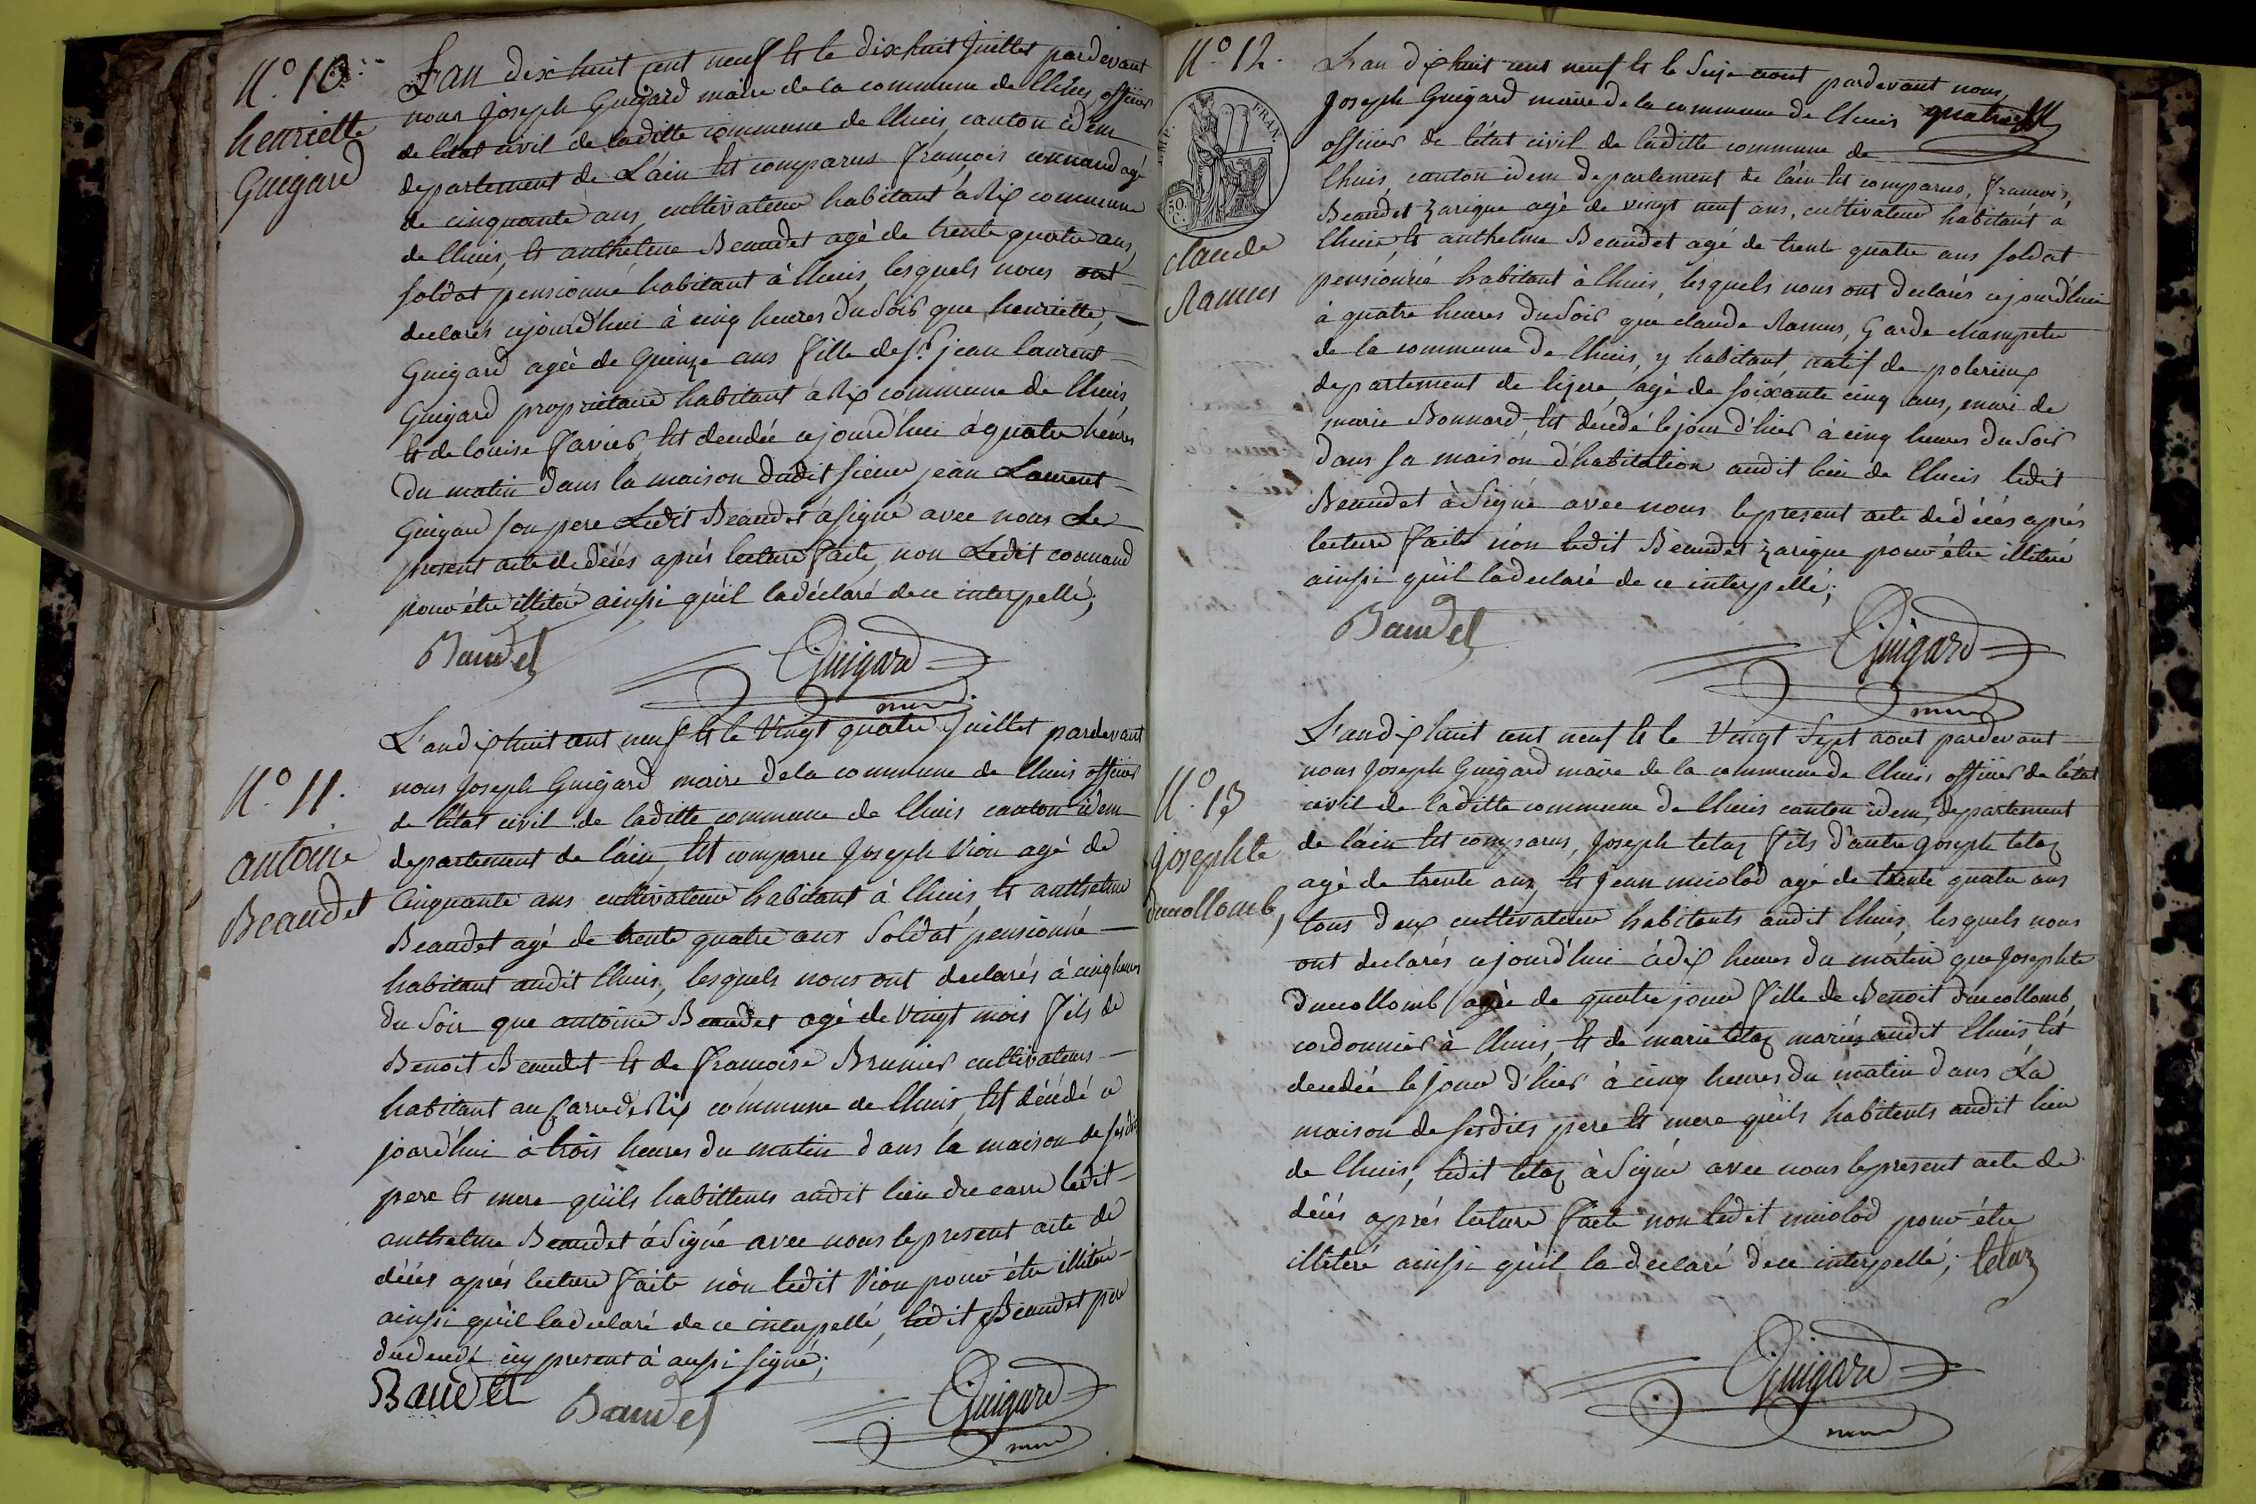 N.° 10.
henriette
Guigard
L'an dix huit cent neuf et le dix huit Juillet pardevant
nous Joseph Guigard maire de la commune de lhuis officier
de l'état civil de laditte commune de lhuis, canton idem
departement de L'ain est comparus françois connand agé
de cinquante ans, cultivateur habitant à Rix commune
de lhuis, et anthelme Beaudet agé de trente quatre ans,
soldat pensionné habitant à lhuis, lesquels nous ont
declarés cejourd'hui à cinq heures du soir que henriette,
Guigard agée de quinze ans fille de s.r jean laurent
Guigard propriétaire habitant à Rix commune de lhuis
et de louise favier, est decedée cejourd'hui à quatre heures
du matin dans la maison dudit sieur jean Laurent
Guigard son pere Ledit Beaudet à signé avec nous Le
present acte de décés aprés lecture faite, non Ledit connand
pour étre illiteré ainsi qu'il la déclaré de ce interpellé;
Baudet
Guigard
maire
N.° 11.
antoine
Beaudet
L'an dix huit cent neuf et le vingt quatre juillet pardevant
nous Joseph Guigard maire dela commune de lhuis officier
de l'état civil de laditte commune de lhuis canton idem
departement de l'ain, est comparu Joseph Vion agé de
Cinquante ans cultivateur habitant à lhuis, et anthelme
Beaudet agé de trente quatre ans Soldat pensionné
habitant audit lhuis, lesquels nous ont declarés à cinq heures
du soir que antoine Beaudet agé de vingt mois fils de
Benoit Beaudet et de françoise Brunier cultivateurs
habitant au carre de Rix commune de lhuis, est décédé ce
jourd'hui à trois heures du matin dans la maison de sesdits
pere et mere qu'ils habittents audit lieu du carre ledit
anthelme Beaudet à signé avec nous le present acte de
décés aprés lecture faite non ledit Vion pour étre illiteré
ainsi qu'il la declaré de ce interpellé, ledit Beaudet pere
du decedé icy present à aussi signé;
Baudet
Baudet
Guigard
maire
N.° 12.
FRAN.
50.
claude
Ramus
L'an dix huit cent neuf et le Seize aout pardevant nous,
Joseph Guigard maire de la commune de lhuis
officier de l'état civil de laditte commune de
lhuis, canton idem departement de l'ain est comparus, françois,
Beaudet Zarique agé de vingt neuf ans, cultivateur habitant a
lhuis et anthelme Beaudet agé de trente quatre ans soldat
pensionné habitant à lhuis, lesquels nous ont declarés cejourd'hui
à quatre heures du soir que claude Ramus, Garde champetre
de la commune de lhuis, y habitant, natif de polerieux
departement de lizere, agé de soixante cinq ans, mari de
marie Bonnard, est décédé le jour d'hier à cinq heures du soir
dans sa maison d'habitation audit lieu de lhuis ledit
Beaudet à Signé avec nous le present acte de décés aprés
lecture faite non ledit Beaudet Zarique pour étre illiteré
ainsi qu'il la declaré de ce interpellé;
Baudet
Guigard
maire
N.° 13
josephte
ducollomb,
L'an dix huit cent neuf et le Vingt Sept aout pardevant
nous Joseph Guigard maire de la commune de lhuis officier de l'état
civil de laditte commune de lhuis canton idem, departement
de l'ain est comparus, Joseph tetaz fils d'autre Joseph tetaz
agé de trente ans, et jean miolod agé de trente quatre ans
tous deux cultivateur habitants audit lhuis, lesquels nous
ont declarés cejourd'hui à dix heures du matin que Josephte
ducollomb agée de quatre jour fille de Benoit ducollomb,
cordonnier à lhuis, et de marie tetaz mariés audit lhuis, est
decedée le jour d'hier à cinq heures du matin dans La
maison de sesdits pere et mere qu'ils habitents audit lieu
de lhuis, ledit tetaz à signé avec nous le present acte de
décés aprés lecture faite non ledit miolod pour étre
illiteré ainsi qu'il la declaré de ce interpellé; tetaz
Guigard
maire